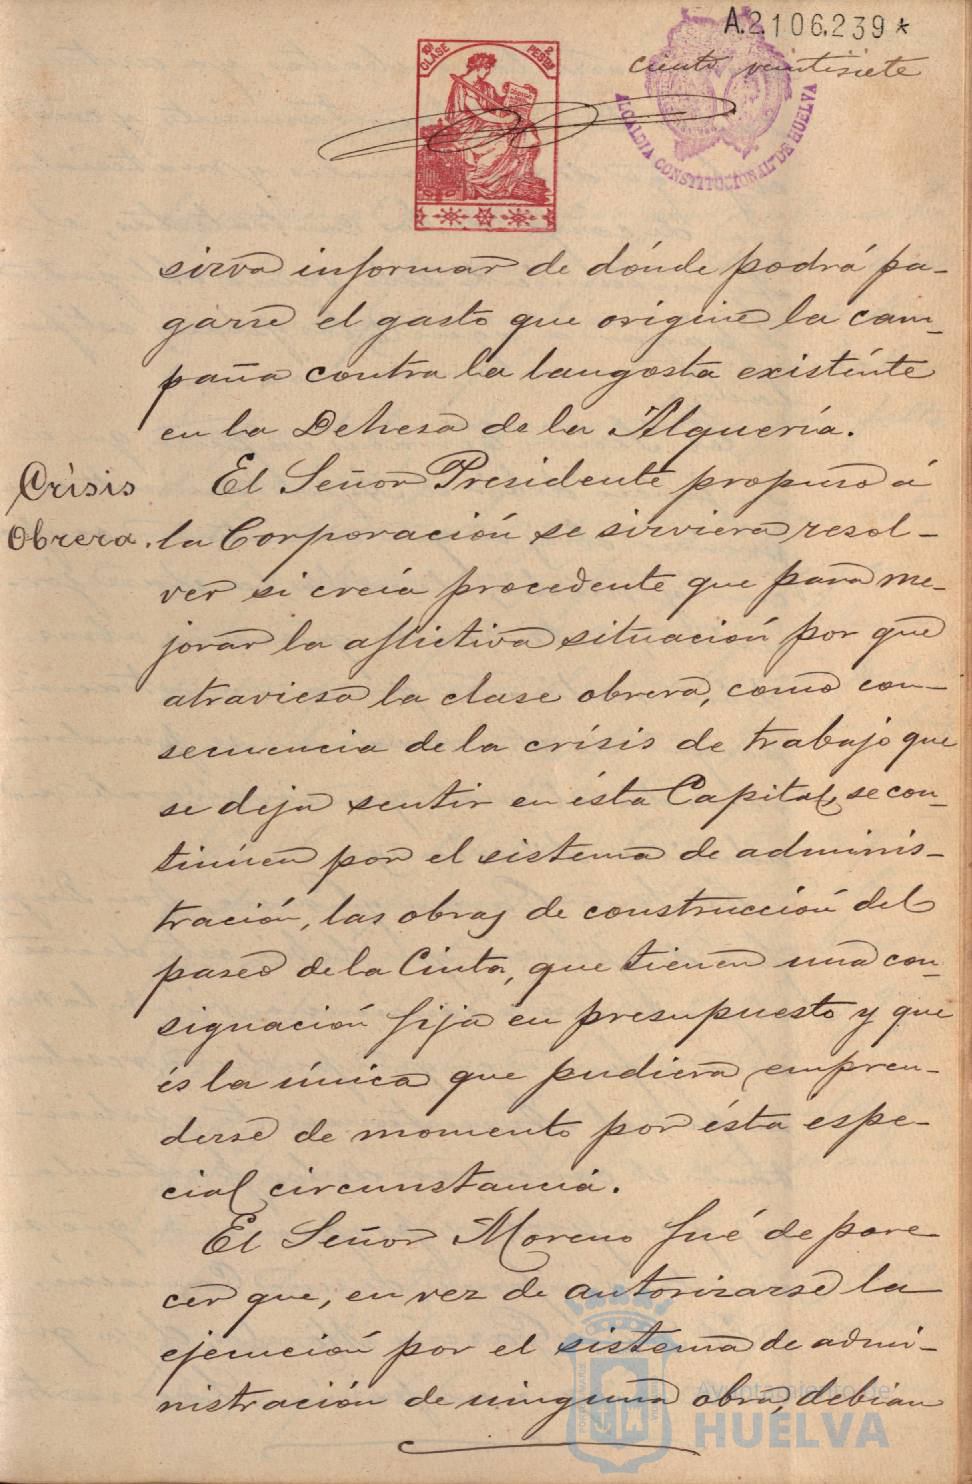 A.2.106.239*
ciento veintisiete
10ª CLASE
2 PESETAS
ALCALDIA CONSTITUCIONAL DE HUELVA
sirva informar de dónde podrá pa-
garse el gasto que origine la cam-
paña contra la langosta existente
en la Dehesa de la Alquería.
Crisis
Obrera.
El Señor Presidente propuso á
la Corporación se sirviera resol-
ver si creía procedente que para me-
jorar la aflictiva situación por que
atraviesa la clase obrera, como con-
secuencia de la crísis de trabajo que
se deja sentir en ésta Capital, se con-
tinúen por el sistema de adminis-
tración, las obras de construcción del
paseo de la Cinta, que tienen una con-
signación fija en presupuesto y que
és la única que pudiera empren-
derse de momento por ésta espe-
cial circunstancia.
El Señor Moreno fué de pare-
cer que, en vez de autorizarse la
ejecución por el sistema de admi-
nistración de ninguna obra, debían
Ayuntamiento de
HUELVA